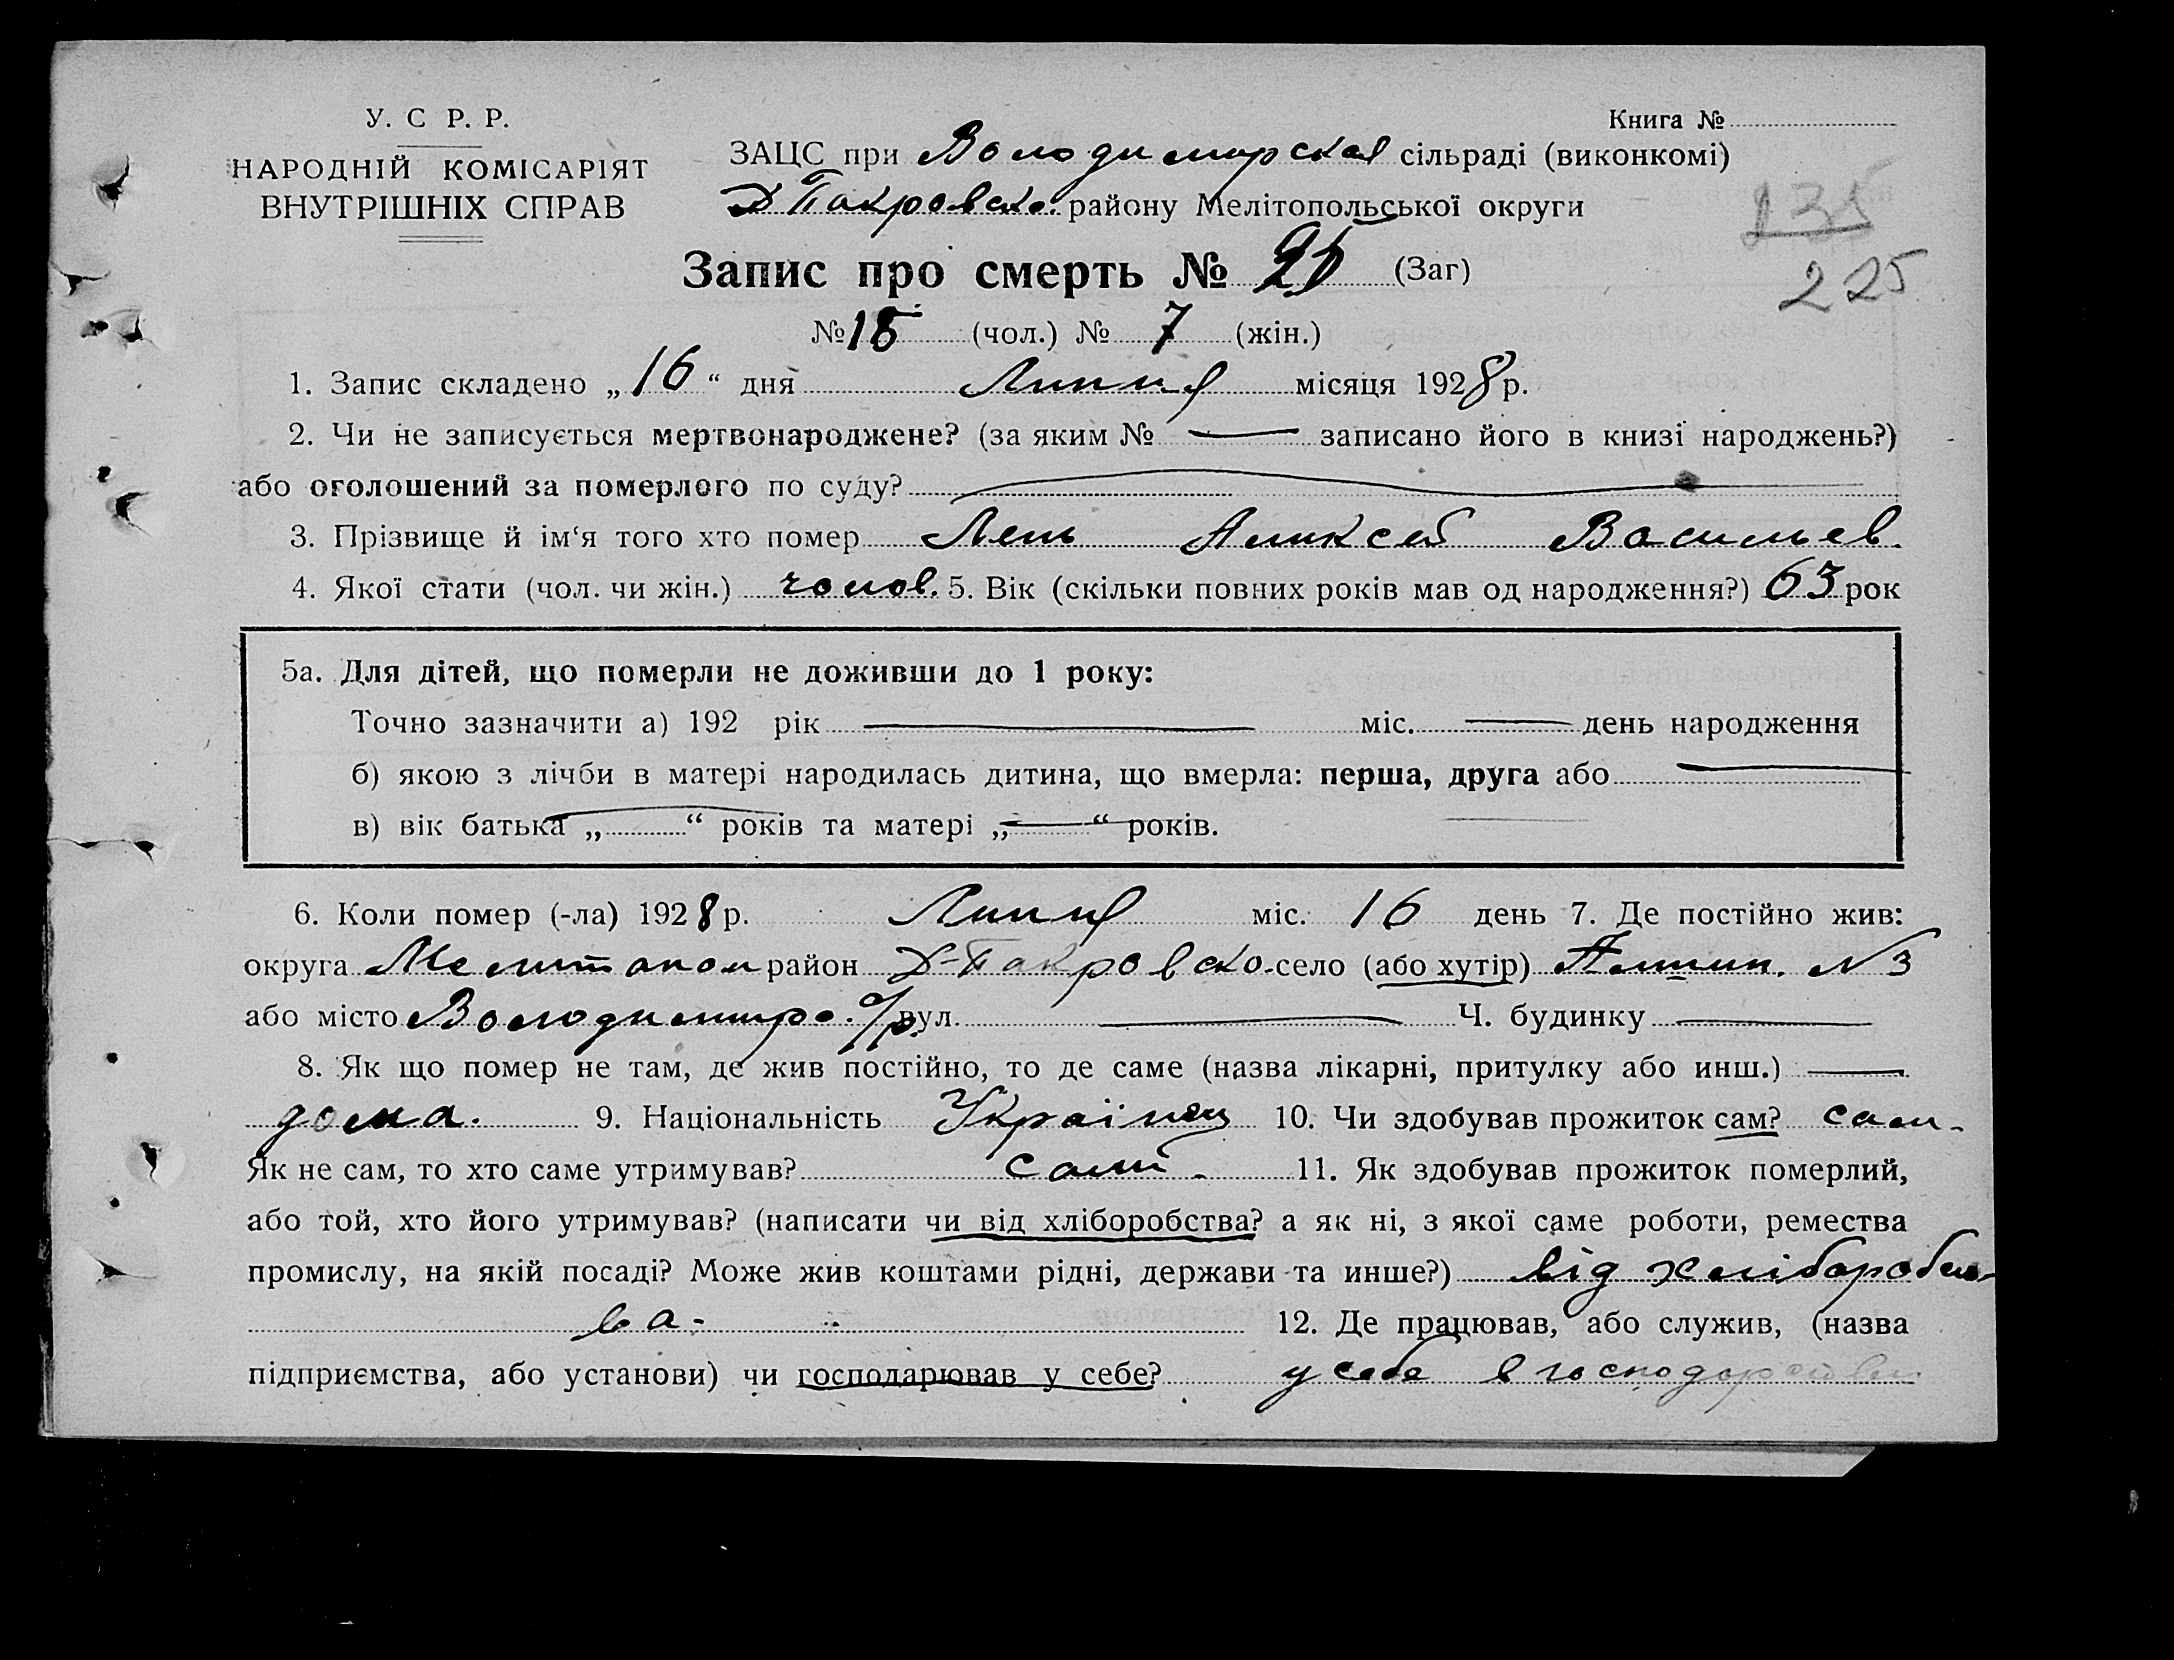 У. С Р. Р.
НАРОДНІЙ КОМІСАРІЯТ
ВНУТРІШНІХ СПРАВ
Книга №
ЗАЦС при Володимирская сільраді (виконкомі)
Д Покровско. району Мелітопольської округи
235
225
Запис про смерть № 25 (Заг)
№ 18 (чол.) № 7 (жін.)
1. Запис складено „ 16 “ дня Липця місяця 1928 р.
2. Чи не записується мертвонароджене? (за яким № — записано його в книзі народжень?)
або оголошений за померлого по суду? —
3. Прізвище й ім‘я того хто помер Лень Аликсей Васильев.
4. Якої стати (чол. чи жін.) чолов. 5. Вік (скільки повних років мав од народження?) 63 рок
5а. Для дітей, що померли не доживши до 1 року:
Точно зазначити а) 192 рік — міс. — день народження
б) якою з лічби в матері народилась дитина, що вмерла: перша, друга або —
в) вік батька „ — “ років та матері „ — “ років.
6. Коли помер (-ла) 1928 р. Липця міс. 16 день 7. Де постійно жив:
округа Мелитопол район Д-Покровско. село (або хутір) №3
або місто Володимиро. с/р. вул. — Ч. будинку —
8. Як що помер не там, де жив постійно, то де саме (назва лікарні, притулку або инш.) —
дома. 9. Національність Українец 10. Чи здобував прожиток сам? сам-
Як не сам, то хто саме утримував? самі - 11. Як здобував прожиток померлий,
або той, хто його утримував? (написати чи від хліборобства? а як ні, з якої саме роботи, ремества
промислу, на якій посаді? Може жив коштами рідні, держави та инше?) від хліборобст-
ва - 12. Де працював, або служив, (назва
підприємства, або установи) чи господарював у себе? у себе в господарстви